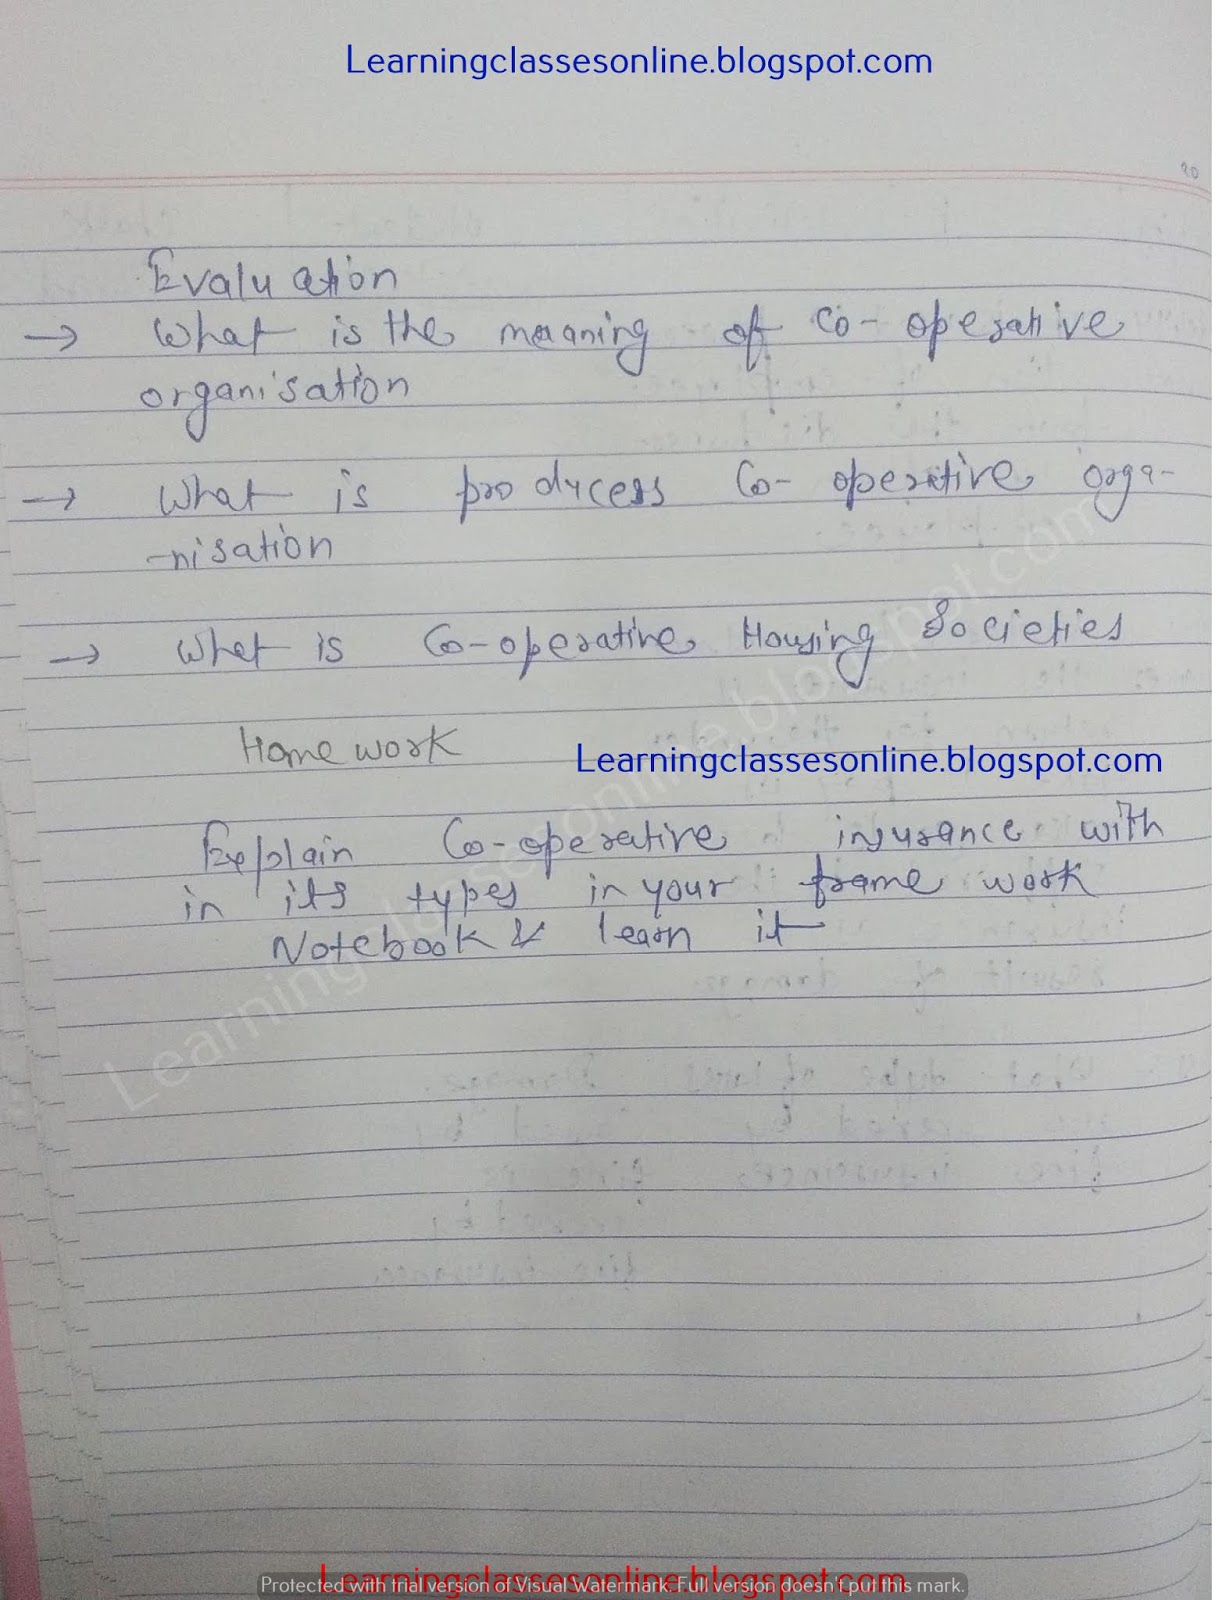 Learningclassesonline.blogspot.com
20
Evaluation
→ What is the meaning of Co-operative
organisation
→ What is producess Co-operative orga-
-nisation
→ What is Co-operative Housing Societies
Home work
Learningclassesonline.blogspot.com
Explain Co-operative insurance with
in its types in your frame work
Notebook & learn it
Learningclassesonline.blogspot.com
Learningclassesonline.blogspot.com
Protected with trial version of Visual Watermark. Full version doesn't put this mark.